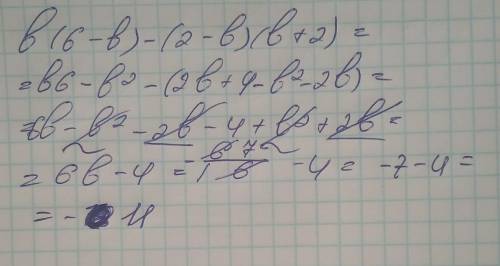 b(6-b)-(2-b)(b+2)=
=b6-b²-(2b+4-b²-2b)=
=6b-b²-2b-4+b²+2b=
=6b-4=-6·7/1·6-4=-7-4=
=-11